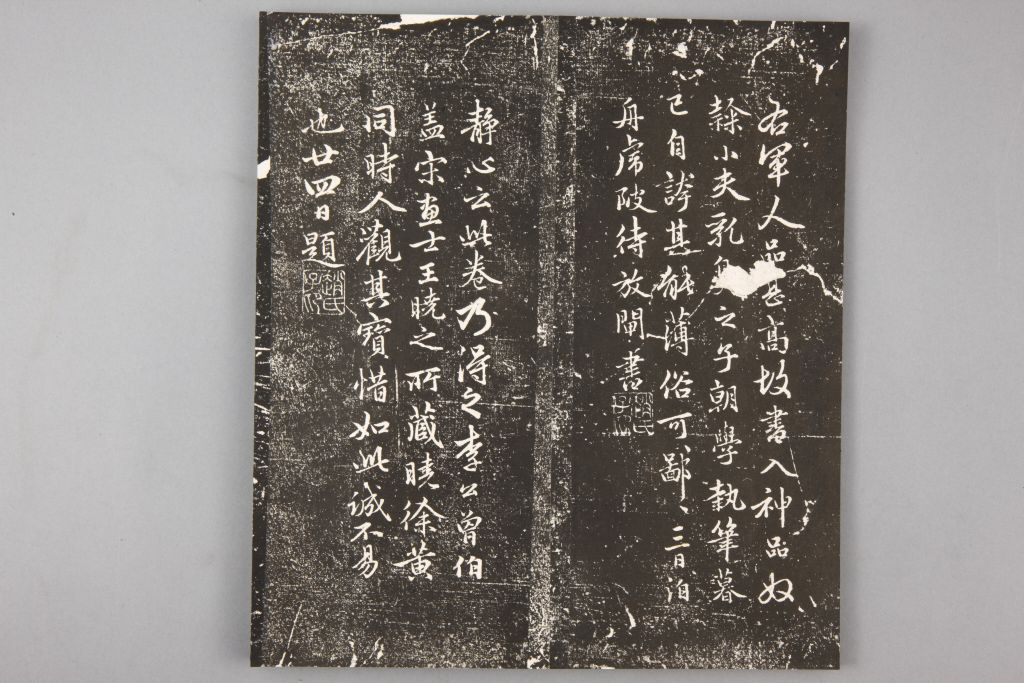 右軍人品甚高故書入神品奴
隸小夫乳臭之子朝學執筆暮
已自誇其能薄俗可鄙、三日泊
舟虎陂待放閘書
趙氏子昂
静心云此卷乃得之李公曾伯
盖宋画士王晓之所藏晓徐黄
同時人觀其寳惜如此誠不易
也廿四日題
趙氏子昂